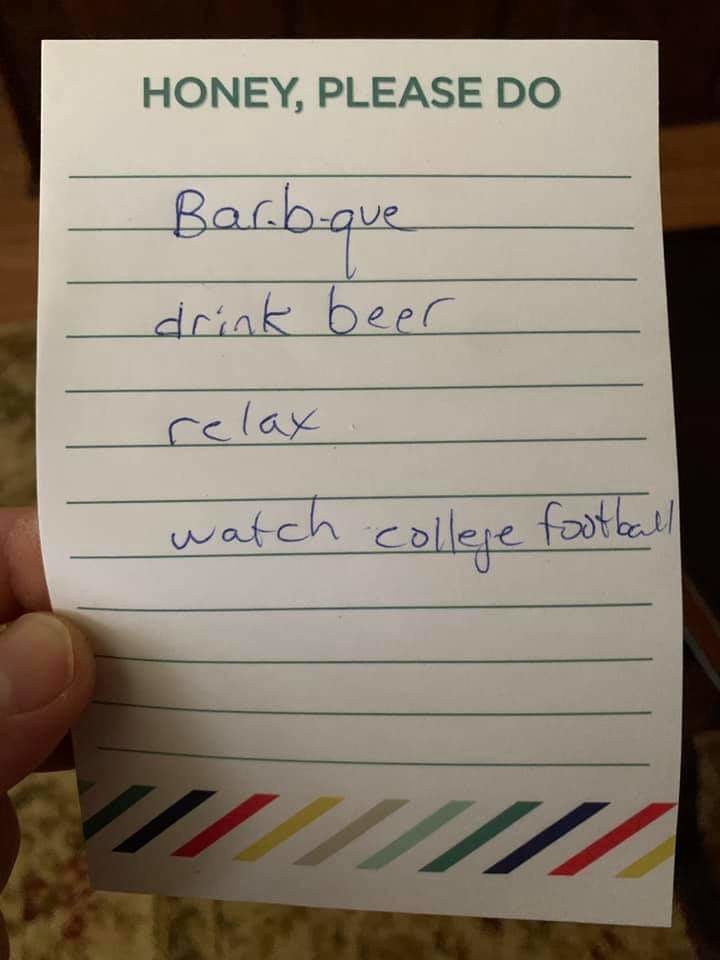 HONEY, PLEASE DO
Bar-b-que
drink beer
relax
watch college football